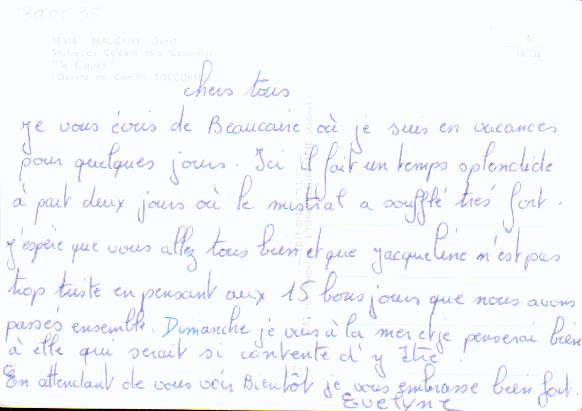 10816 BEAUCAIRE (Gard)
Statue du Célèbre toro Cocardier
"le Clairon"
Oeuvre de Camille SOCCORSI
chers tous
Je vous écris de Beaucaire où je suis en vacances
pour quelques jours. Ici il fait un temps splendide
à part deux jours où le mistral a soufflé trés fort.
j'espère que vous allez tous bien et que jacqueline n'est pas
trop triste en pensant aux 15 bons jours que nous avons
passés ensemble. Dimanche je vais à la mer et je penserai bien
à elle qui serait si contente d'y être.
En attendant de vous voir Bientôt je vous embrasse bien fort.
Evelyne